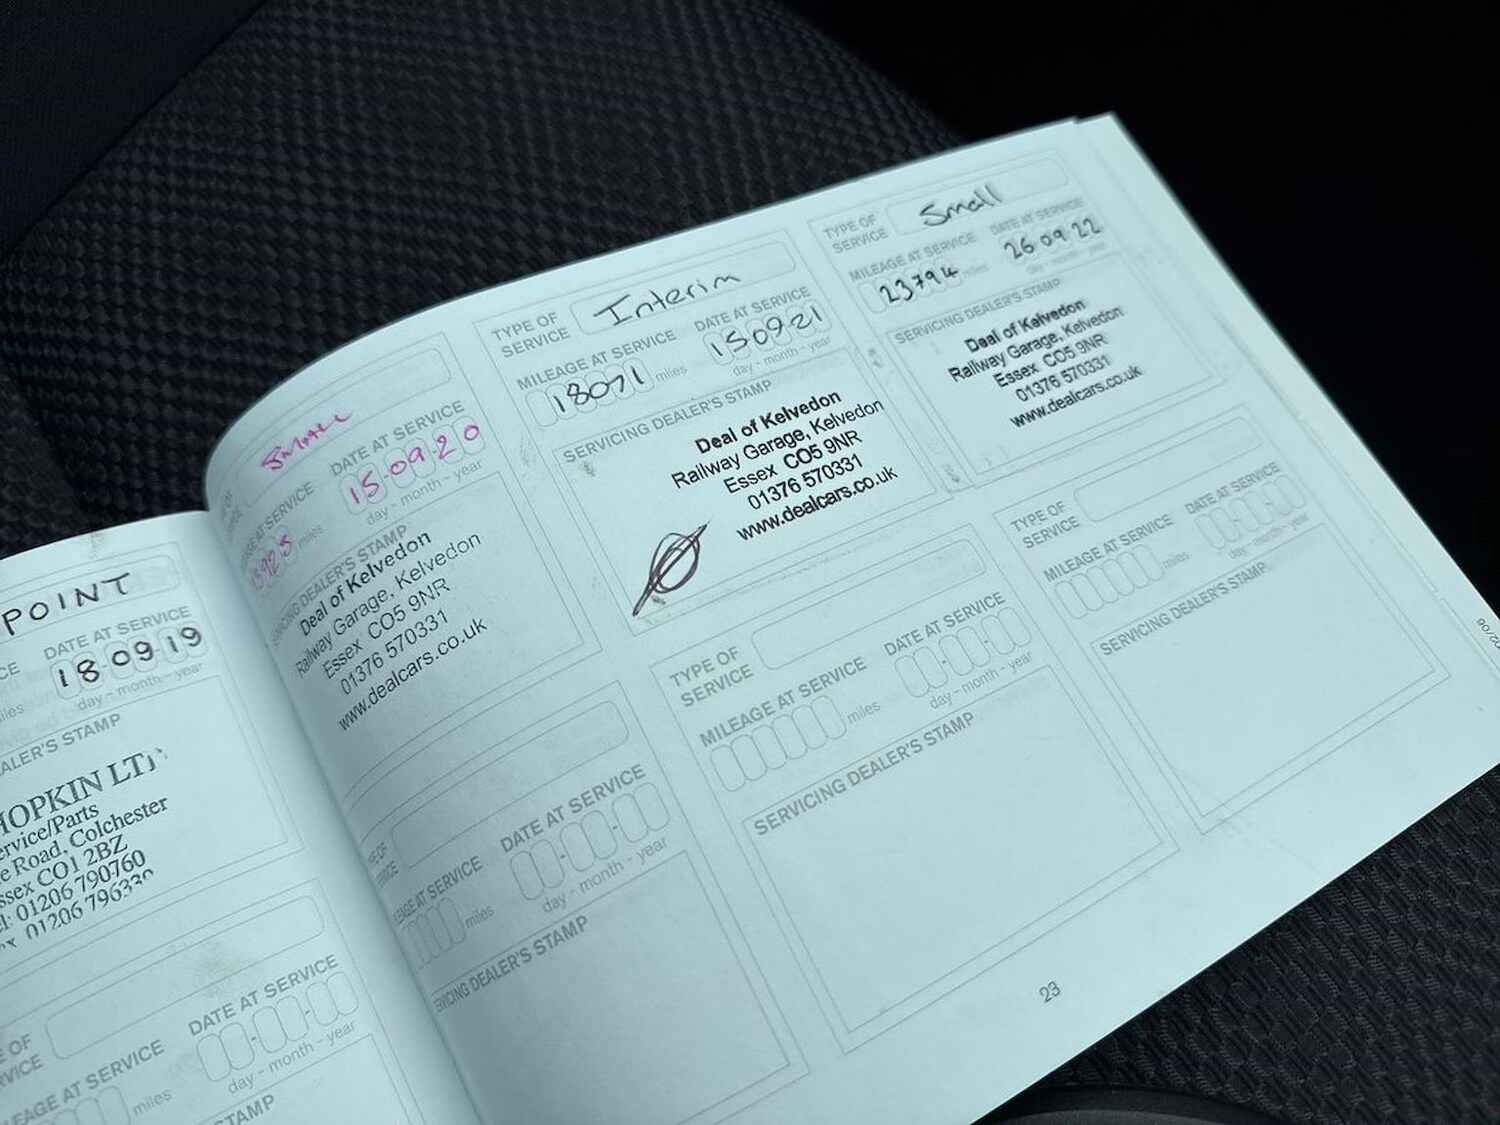 POINT
DATE AT SERVICE
18-09-19
day - month - year
HOPKIN
Road, Colchester
CO1 2BZ
01206 790760
DATE AT SERVICE
day - month - year
AT SERVICE
miles
STAMP
Small
DATE AT SERVICE
15-09-20
day - month - year
miles
DEALER'S STAMP
Deal of Kelvedon
Railway Garage, Kelvedon
Essex CO5 9NR
01376 570331
www.dealcars.co.uk
DATE AT SERVICE
day - month - year
AT SERVICE
miles
DEALER'S STAMP
TYPE OF
SERVICE
Interim
MILEAGE AT SERVICE
18071 miles
DATE AT SERVICE
15-09-21
day - month - year
SERVICING DEALER'S STAMP
Deal of Kelvedon
Railway Garage, Kelvedon
Essex CO5 9NR
01376 570331
www.dealcars.co.uk
TYPE OF
SERVICE
MILEAGE AT SERVICE
miles
DATE AT SERVICE
day - month - year
SERVICING DEALER'S STAMP
TYPE OF
SERVICE
Small
MILEAGE AT SERVICE
23794 miles
DATE AT SERVICE
26-09-22
day - month - year
SERVICING DEALER'S STAMP
Deal of Kelvedon
Railway Garage, Kelvedon
Essex CO5 9NR
01376 570331
www.dealcars.co.uk
TYPE OF
SERVICE
MILEAGE AT SERVICE
miles
DATE AT SERVICE
day - month - year
SERVICING DEALER'S STAMP
23